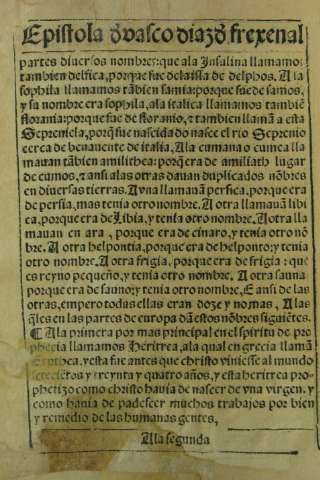 Epistola d̄ vasco diaz d̄ frexenal
partes diuersos nombres: que ala Insulina llamamos
tambien delfica, porque fue dela isla de delphos. A la
sophila llamamos tābien samia: porque fue de samos,
y su nombre era sophila, ala italica llamamos tambiē
storamia: porque fue de storanio, ⁊ tambien llamā a esta
Sepreniela, porq̄ fue nascida do nasce el rio Seprenio
cerca de benauente de italia, A la cumana o cumea lla
mauan tābien amilithea: porq̄ era de amiliath lugar
de cumos, ⁊ ansi alas otras dauan duplicados nōbres
en diuersas tierras. A vna llamauā persica, porque era
de persia, mas tenia otro nombre. A otra llamauā libi
ca, porque era de Libia, y tenia otro nombre. A otra lla
mauan en ara, porque era de cinaro, y tenia otro nō
bre. A otra helpontia, porque era de helponto: y tenia
otro nombre. A otra frigia, porque era de frigia: que
es reyno pequeño, y tenia otro nombre. A otra sauna
porque era de sauno: y tenia otro nombre, E ansi de las
otras, empero todas ellas eran doze y no mas, A las
q̄les en las partes de europa dā estos nōbres siguiētes.
¶ A la primera por mas principal en el spiritu de pro
phecia llamamos Heritrea, ala qual en grecia llamā
Erithea, y esta fue antes que christo viniesse al mundo
setecietos y treynta y quatro años, y esta heritrea pro
phetizo como christo hauia de nascer de vna virgen. y
como hauia de padescer muchos trabajos por bien
y remedio de las humanas gentes,
A la segunda